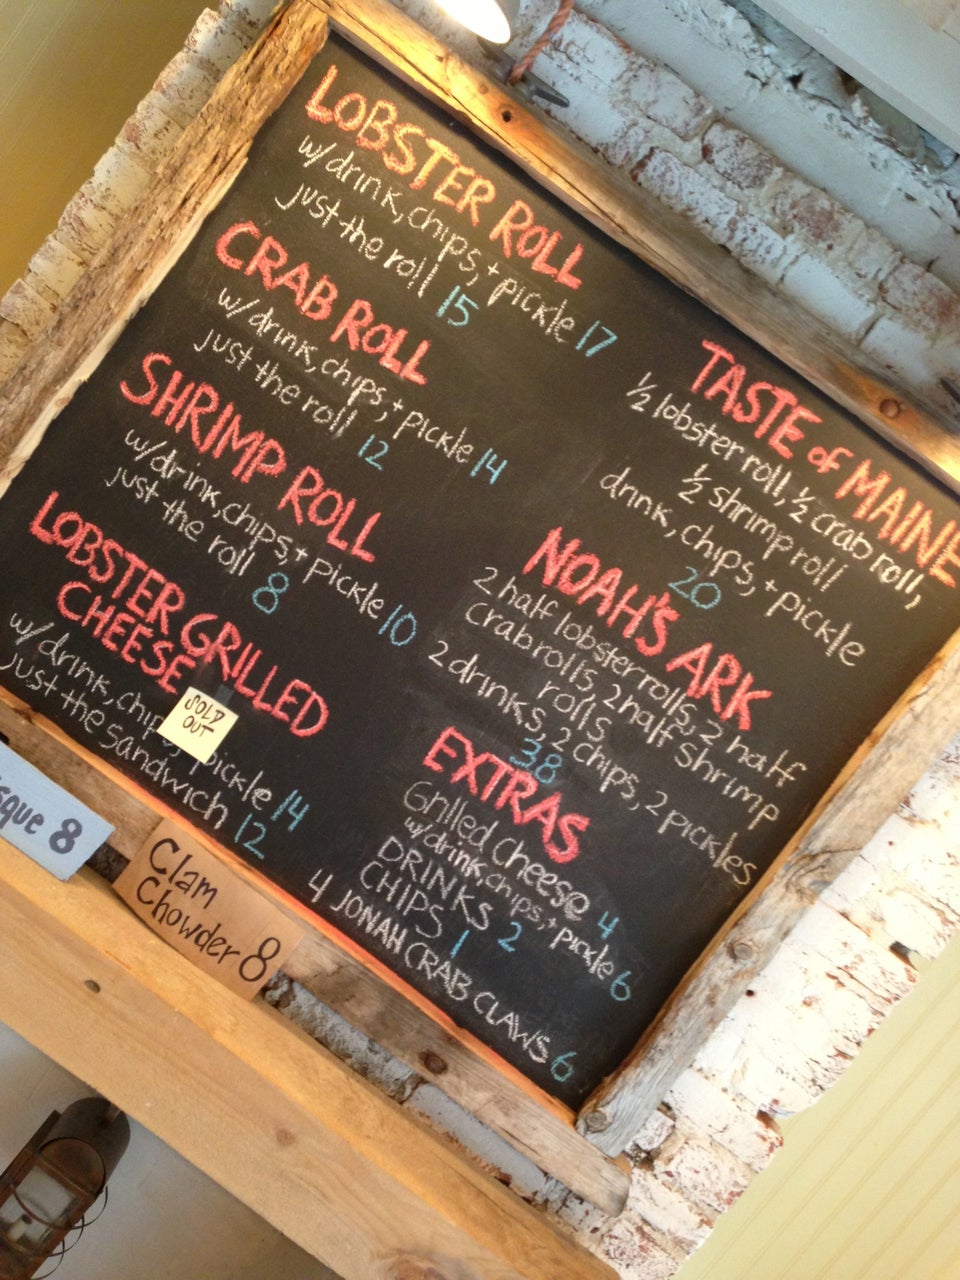 LOBSTER ROLL
w/drink, chips, + pickle 17
just the roll 15
CRAB ROLL
w/drink, chips, + pickle 14
just the roll 12
SHRIMP ROLL
w/drink, chips, + pickle 10
just the roll 8
LOBSTER GRILLED
CHEESE
SOLD
OUT
w/drink, chips, pickle 14
just the sandwich 12
TASTE of MAINE
½ lobster roll, ½ crab roll,
½ shrimp roll
drink, chips, + pickle
20
NOAH'S ARK
2 half lobster rolls, 2 half
crab rolls, 2 half shrimp
rolls
2 drinks, 2 chips, 2 pickles
38
EXTRAS
Grilled Cheese 4
w/drink, chips, + pickle 6
DRINKS 2
CHIPS 1
4 JONAH CRAB CLAWS 6
sque 8
Clam
Chowder 8